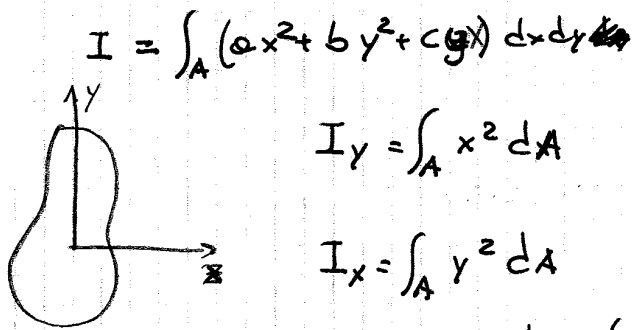 I = ∫_A (a x² + b y² + c yx) dx dy
y
I_y = ∫_A x² dA
x
I_x = ∫_A y² dA